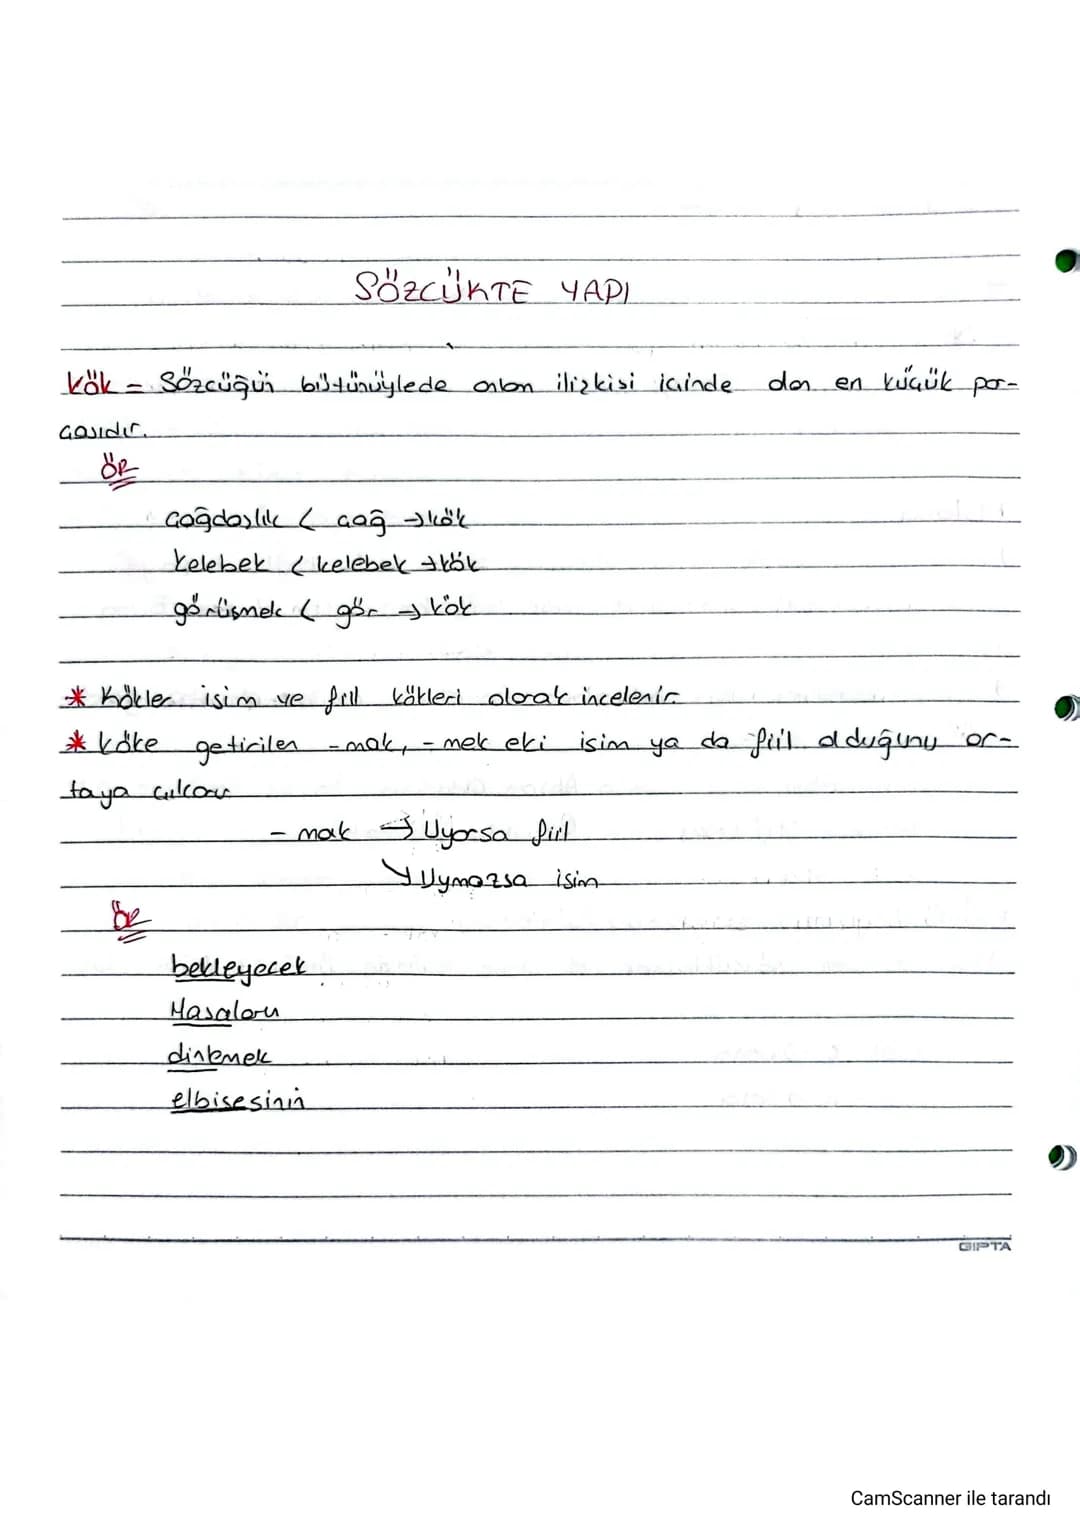 SÖZCÜKTE YAPI
kök = Sözcüğün bütünüylede anlam ilişkisi içinde olan en küçük par-
çasıdır.
ÖR
çağdaşlık < çağ → kök
kelebek < kelebek → kök
görüşmek < gör → kök
* Kökler isim ve fiil kökleri olarak incelenir.
* köke getirilen -mak, -mek eki isim ya da fiil olduğunu or-
taya çıkarır
- mak → Uyorsa fiil
↘ Uymazsa isim
ÖR
bekleyecek
Masaları
dinlemek
elbisesinin
GIPTA
CamScanner ile tarandı